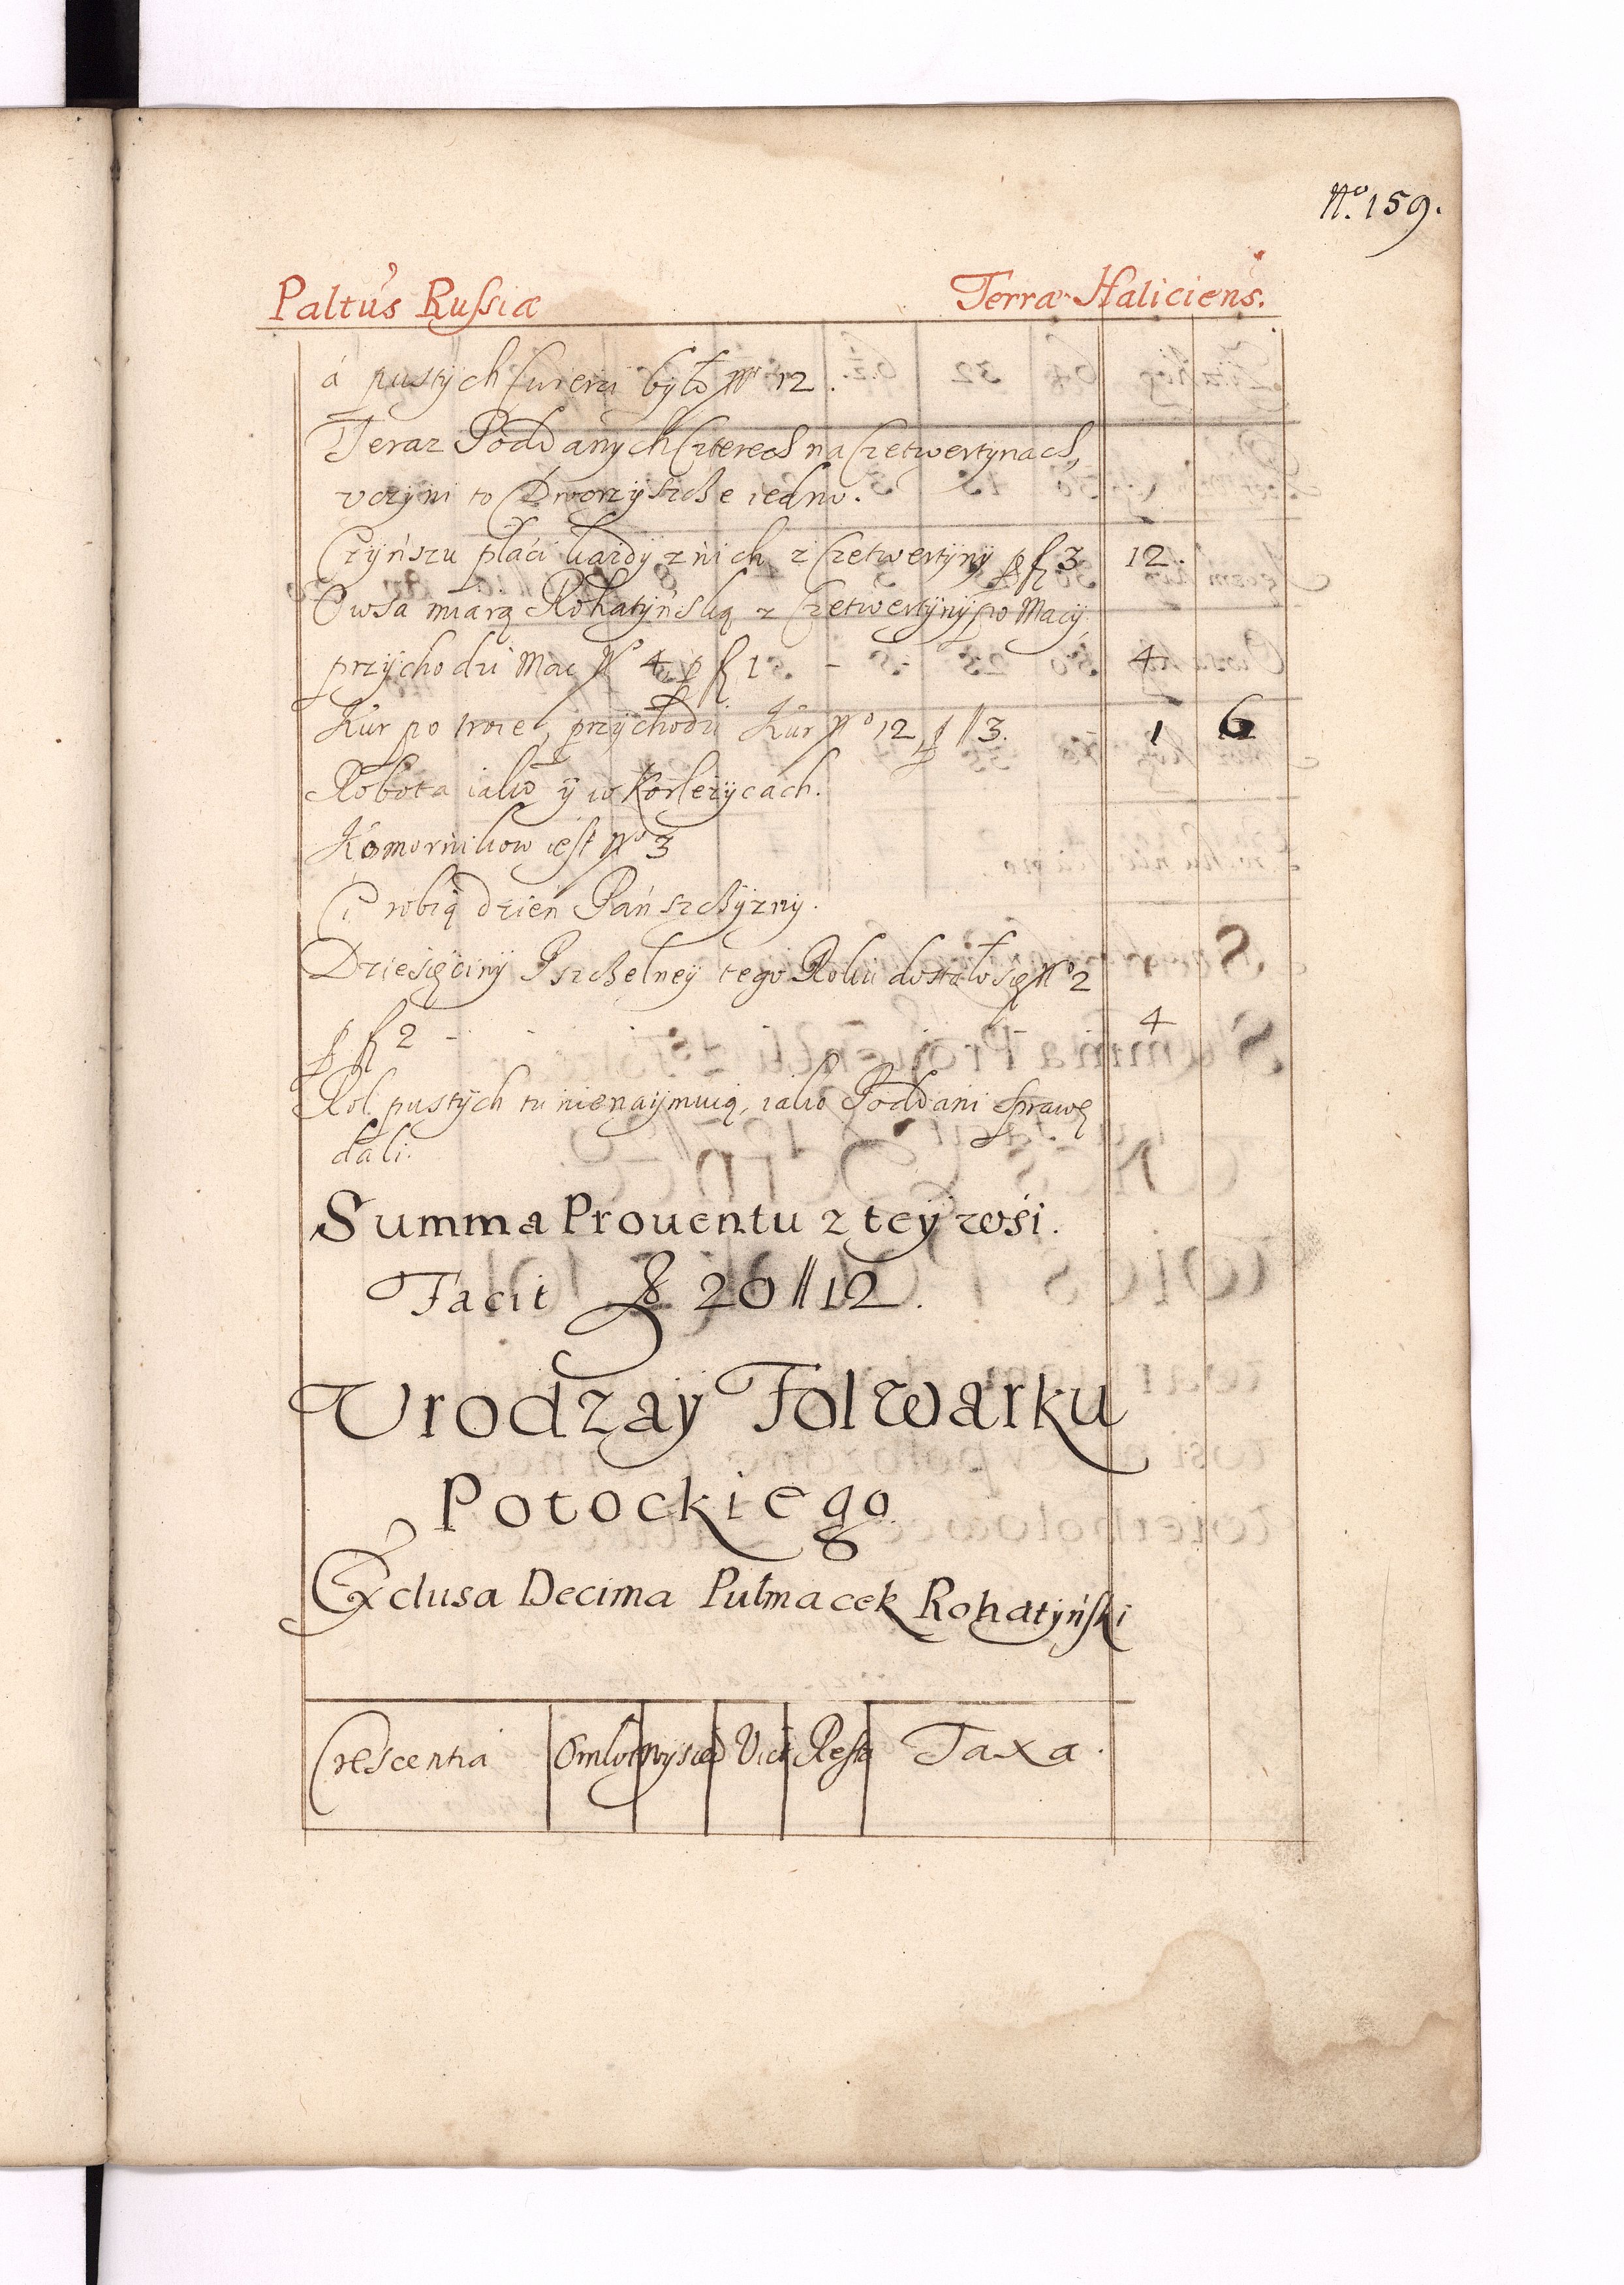 No. 159.
Paltus Russiæ Terræ Haliciens.
á pustych Cwierci było No 12.
Teraz Poddanych Czterech na Czetwertynach,
vczyni to Dworzyszcze iedno.
Czynszu płaći każdy z nich z Czetwertyny p fl 3 12.
Owsa miarą Rohatyńską z Czetwertyny po Macy,
przychodzi Mac No 4 p fl 1 4
Kur po troie, przychodzi Kur No 12 p // 3. 1 6
Robota iako y w
Komornikow iest No 3
Ci robią dzień Pańszczyzny.
Dziesięciny Pszczelney tego Roku dostało się No 2
p fl 2 - 4
Rol pustych tu nienaymuią, iako Poddani sprawę
dali.
Summa Prouentu z tey wśi.
Facit fl 20 // 12.
Vrodzay Folwarku
Potockiego
Exclusa Decima Pułmacek Rohatyński
Crescentia Omłot Wysiew Vict Resta Taxa.